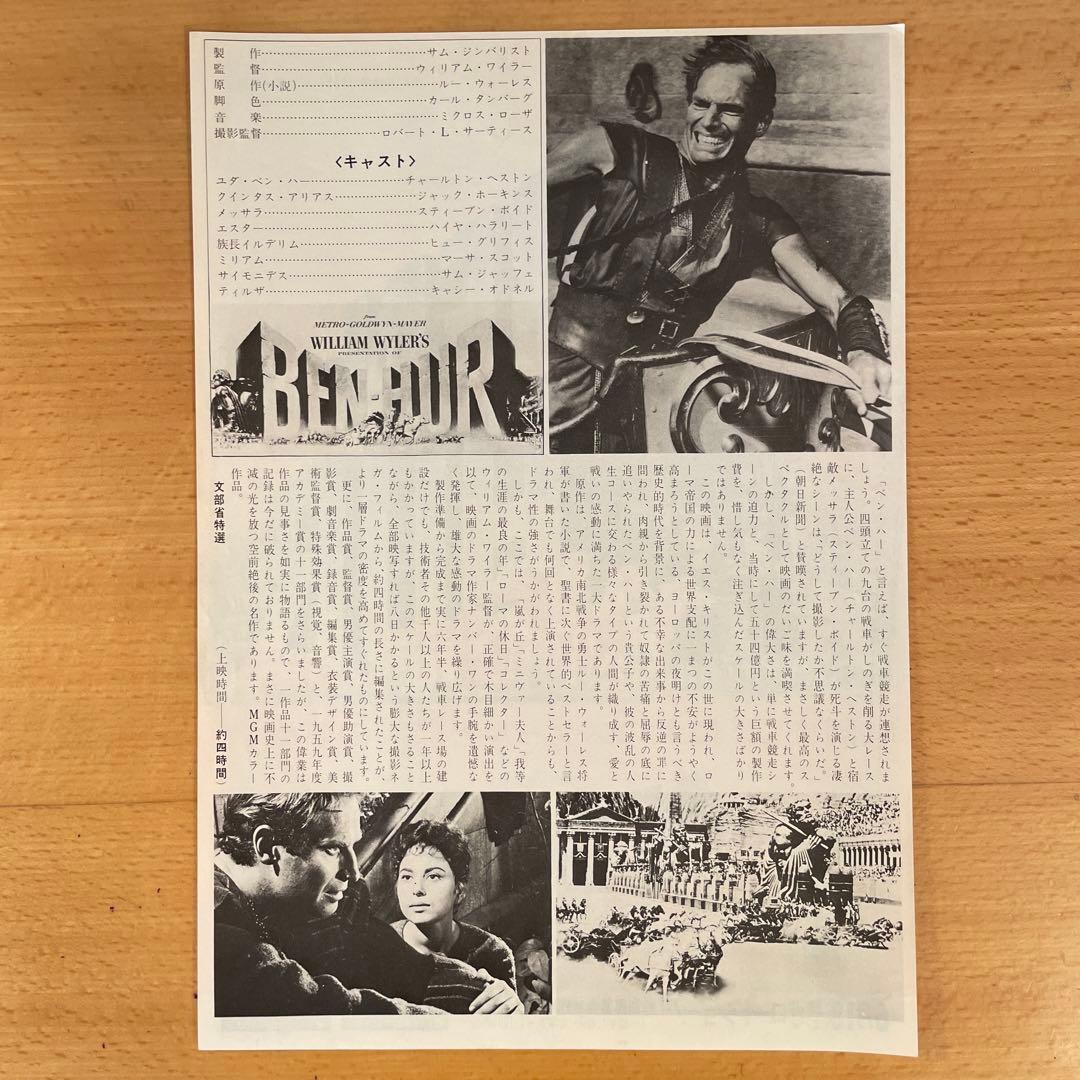 製作…………サム・ジンバリスト
監督…………ウィリアム・ワイラー
原作(小説)…………ルー・ウォーレス
脚色…………カール・タンバーグ
音楽…………ミクロス・ローザ
撮影監督…………ロバート・L・サーティース
〈キャスト〉
ユダ・ベン・ハー…………チャールトン・ヘストン
クインタス・アリアス…………ジャック・ホーキンス
メッサラ…………スティーブン・ボイド
エスター…………ハイヤ・ハラリート
族長イルデリム…………ヒュー・グリフィス
ミリアム…………マーサ・スコット
サイモニデス…………サム・ジャッフェ
ティルザ…………キャシー・オドネル
from
METRO-GOLDWYN-MAYER
WILLIAM WYLER'S
PRESENTATION OF
BEN-HUR
「ベン・ハー」と言えば、すぐ戦車競走が連想されま
しょう。四頭立ての九台の戦車がしのぎを削る大レース
に、主人公ベン・ハー（チャールトン・ヘストン）と宿
敵メッサラ（スティーブン・ボイド）が死斗を演じる凄
絶なシーンは「どうして撮影したか不思議なくらいだ。」
（朝日新聞）と賛嘆されていますが、まさしく最高のス
ペクタクルとして映画のだいご味を満喫させてくれます。
しかし、「ベン・ハー」の偉大さは、単に戦車競走シ
ーンの迫力と、当時にして五十四億円という巨額の製作
費を、惜し気もなく注ぎ込んだスケールの大きさばかり
ではありません。
この映画は、イエス・キリストがこの世に現われ、ロ
ーマ帝国の力による世界支配に一まつの不安がようやく
高まろうとしている、ヨーロッパの夜明けとも言うべき
歴史的時代を背景に、ある不幸な出来事から反逆の罪に
問われ、肉親から引き裂かれて奴隷の苦痛と屈辱の底に
追いやられたベン・ハーという貴公子や、彼の波乱の人
生コースに交わる様々なタイプの人間が織り成す、愛と
戦いの感動に満ちた一大ドラマであります。
原作は、アメリカ南北戦争の勇士ルー・ウォーレス将
軍が書いた小説で、聖書に次ぐ世界的ベストセラーと言
われ、舞台でも何回となく上演されていることからも、
ドラマ性の強さがうかがわれましょう。
しかも、ここでは、「嵐が丘」「ミニヴァー夫人」「我等
の生涯の最良の年」「ローマの休日」「コレクター」などの
ウィリアム・ワイラー監督が、正確で木目細かい演出を
以て、映画のドラマ作家ナンバー・ワンの手腕を遺憾な
く発揮し、雄大な感動のドラマを繰り広げます。
製作準備から完成まで実に六年半、戦車レース場の建
設だけでも、技術者その他千人以上の人たちが一年以上
もかかっていますが、このスケールの大きさもさること
ながら、全部映写すれば八日かかるという膨大な撮影ネ
ガ・フィルムから、約四時間の長さに編集されたことが、
より一層ドラマの密度を高めてすぐれたものにしています。
更に、作品賞、監督賞、男優主演賞、男優助演賞、撮
影賞、劇音楽賞、録音賞、編集賞、衣装デザイン賞、美
術監督賞、特殊効果賞（視覚、音響）と、一九五九年度
アカデミー賞の十一部門をさらいましたが、この偉業は
作品の見事さを如実に物語るもので、一作品十一部門の
記録は今だに破られておりません。まさに映画史上に不
滅の光を放つ空前絶後の名作であります。MGMカラー
作品。
文部省特選
（上映時間――約四時間）